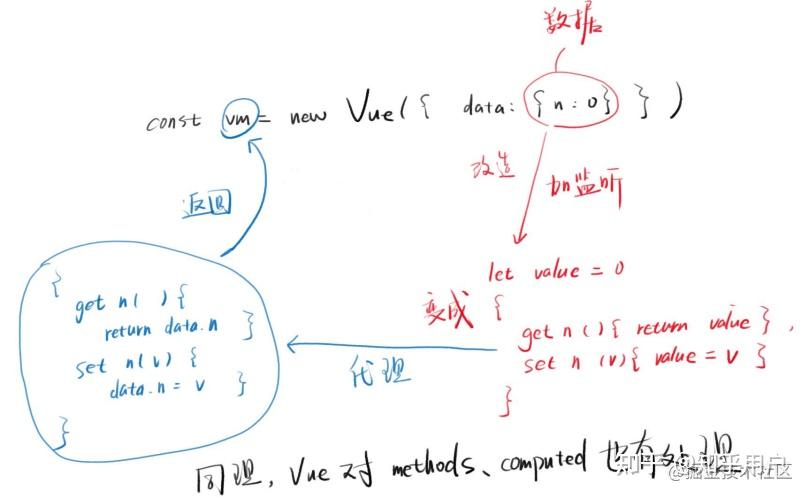 数据
const vm = new Vue({ data: { n: 0 } })
改造
加监听
返回
let value = 0
变成
{
get n(){ return value },
set n(v){ value = v }
}
代理
{
get n( ){
return data.n }
set n(v) {
data.n = v }
}
同理，Vue 对 methods、computed 也有处理
知乎用户
@掘金技术社区